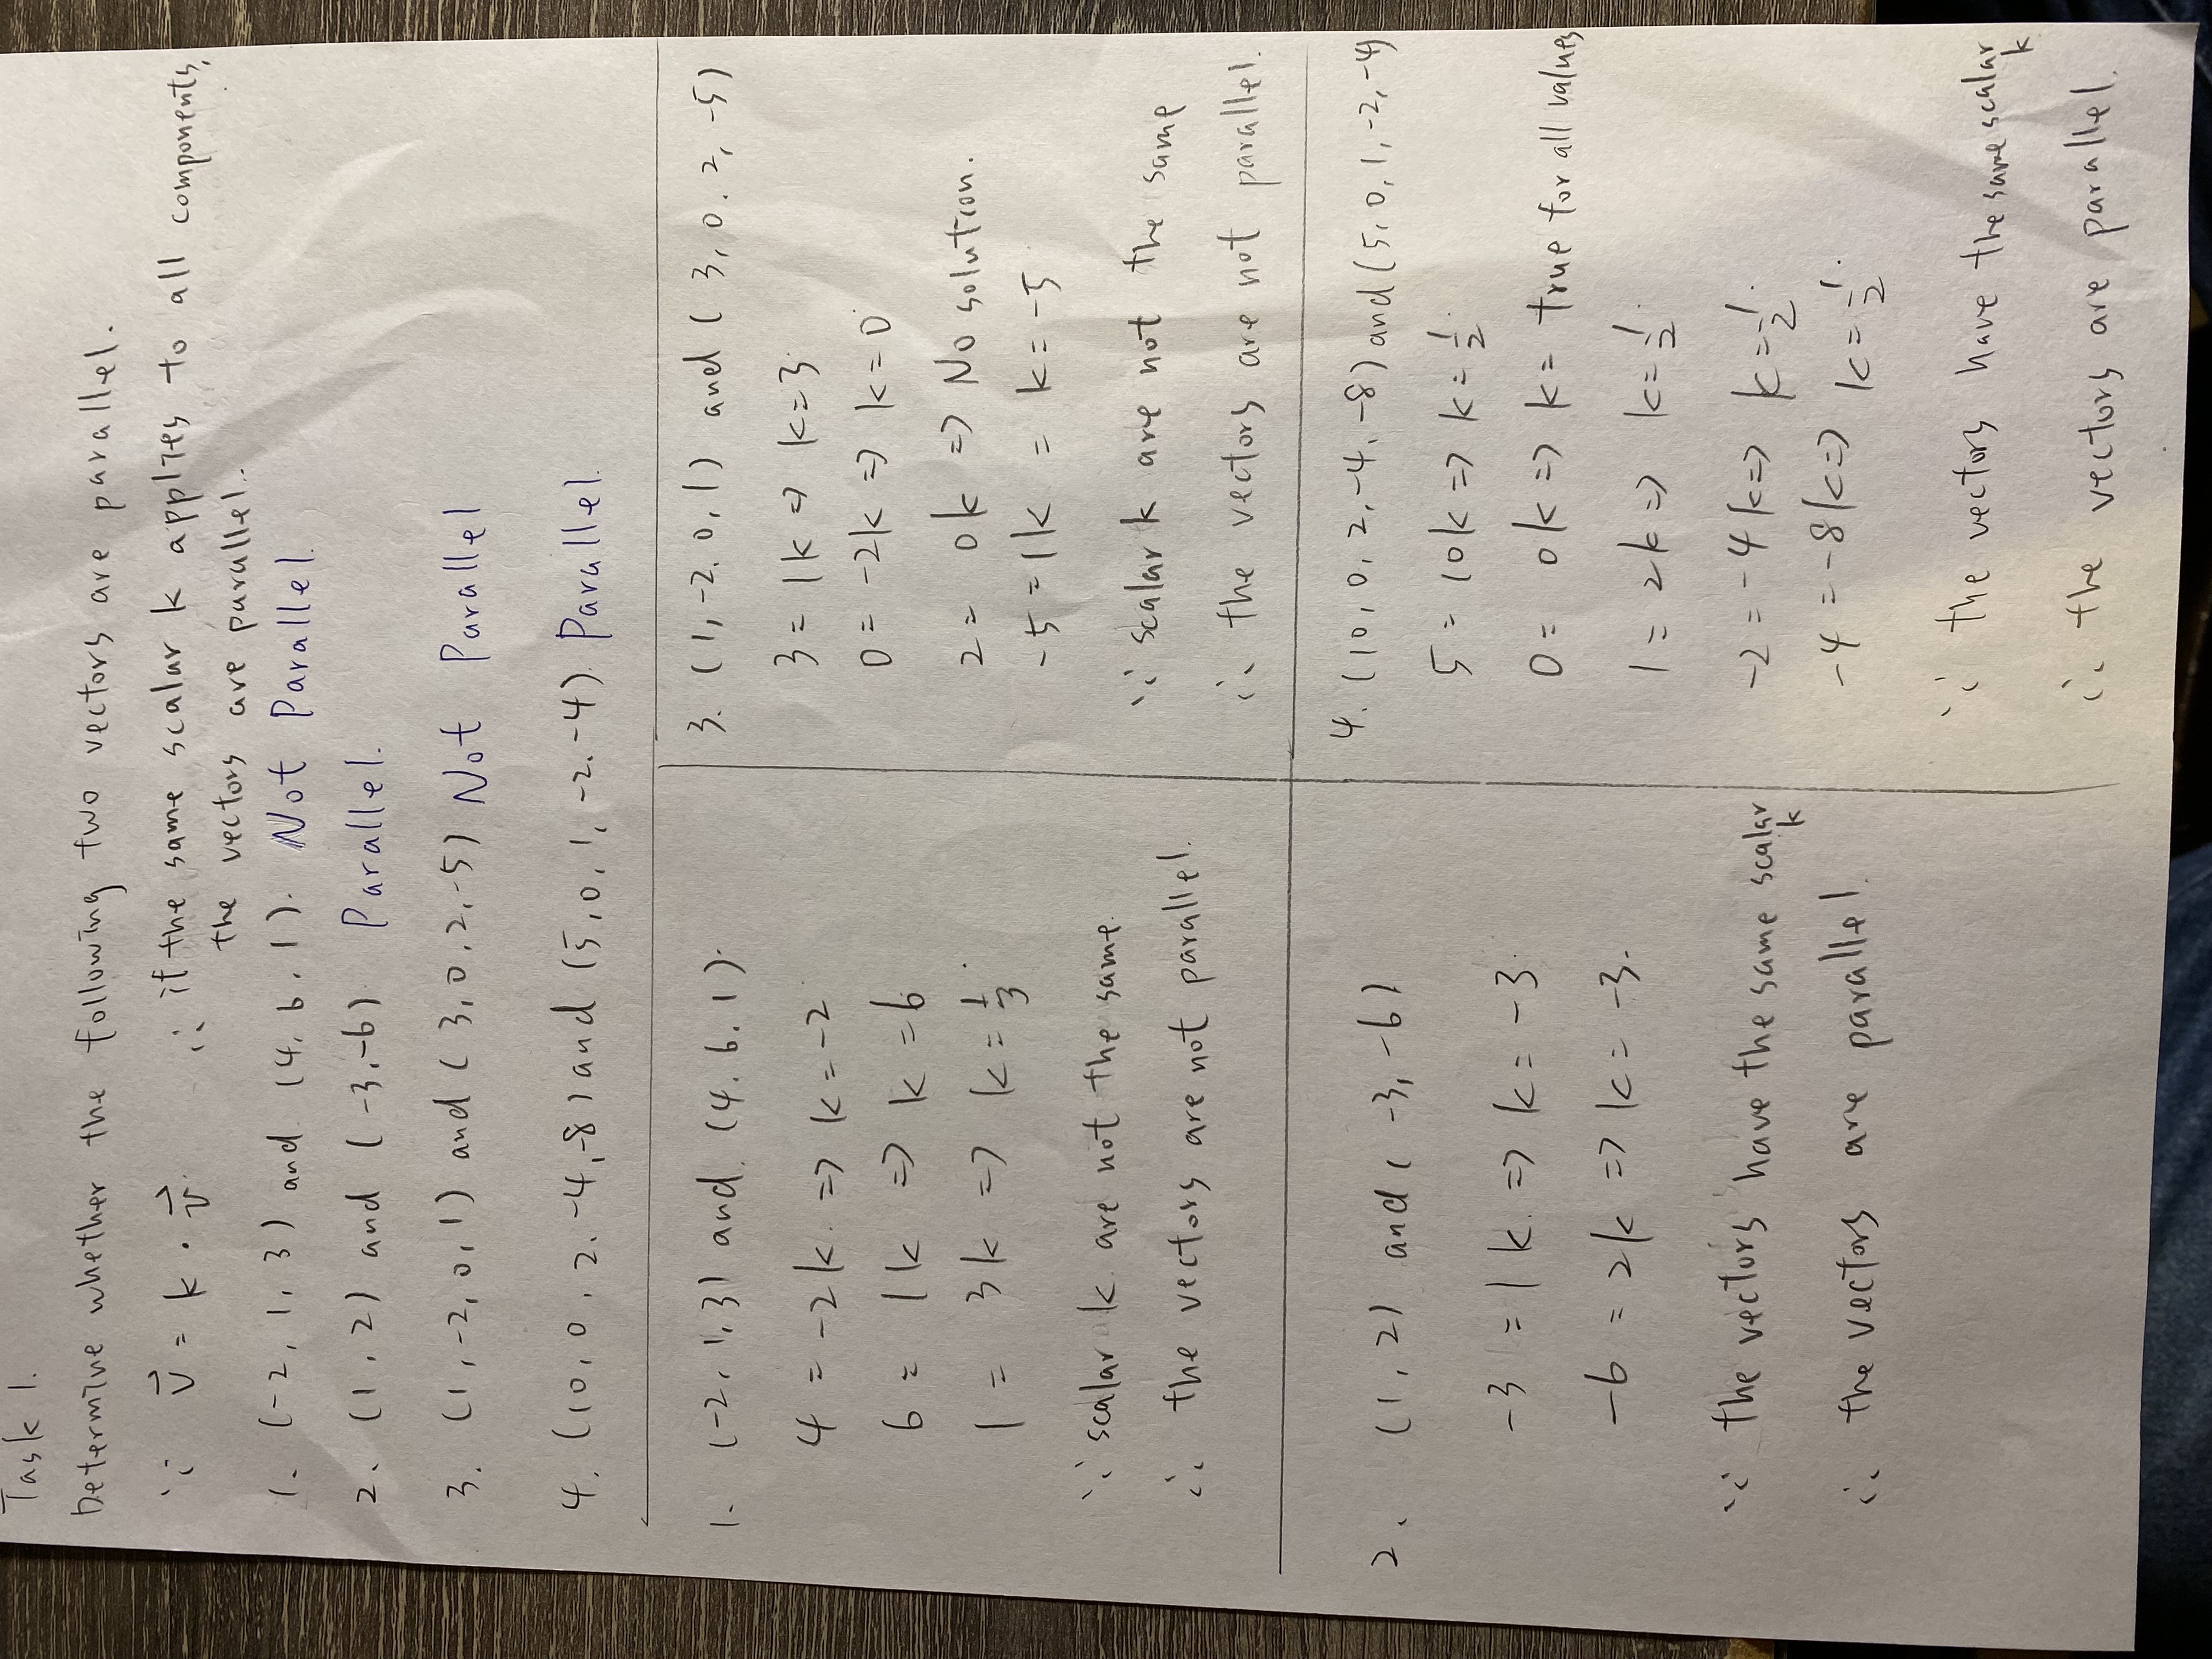 Task 1.
Determine whether the following two vectors are parallel.
∵ v⃗ = k · v⃗. ∴ if the same scalar k applies to all components,
the vectors are parallel.
1. (-2, 1, 3) and (4, 6, 1). Not Parallel.
2. (1, 2) and (-3, -6) Parallel.
3. (1, -2, 0, 1) and (3, 0, 2, -5) Not Parallel
4. (10, 0, 2, -4, -8) and (5, 0, 1, -2, -4). Parallel.
1. (-2, 1, 3) and (4, 6, 1).
4 = -2k. => k = -2
6 = 1k => k = 6
1 = 3k => k = 1/3
∵ scalar k are not the same.
∴ the vectors are not parallel.
2. (1, 2) and (-3, -6)
-3 = 1k. => k = -3
-6 = 2k => k = -3.
∵ the vectors have the same scalar
k
∴ the vectors are parallel.
3. (1, -2, 0, 1) and (3, 0, 2, -5)
3 = 1k => k = 3
0 = -2k => k = 0
2 = 0k => No solution.
-5 = 1k = k = -5
∵ scalar k are not the same
∴ the vectors are not parallel.
4. (10, 0, 2, -4, -8) and (5, 0, 1, -2, -4)
5 = 10k => k = 1/2
0 = 0k => k = true for all values
1 = 2k => k = 1/2
-2 = -4k => k = 1/2
-4 = -8k => k = 1/2
∵ the vectors have the same scalar
k
∴ the vectors are parallel.